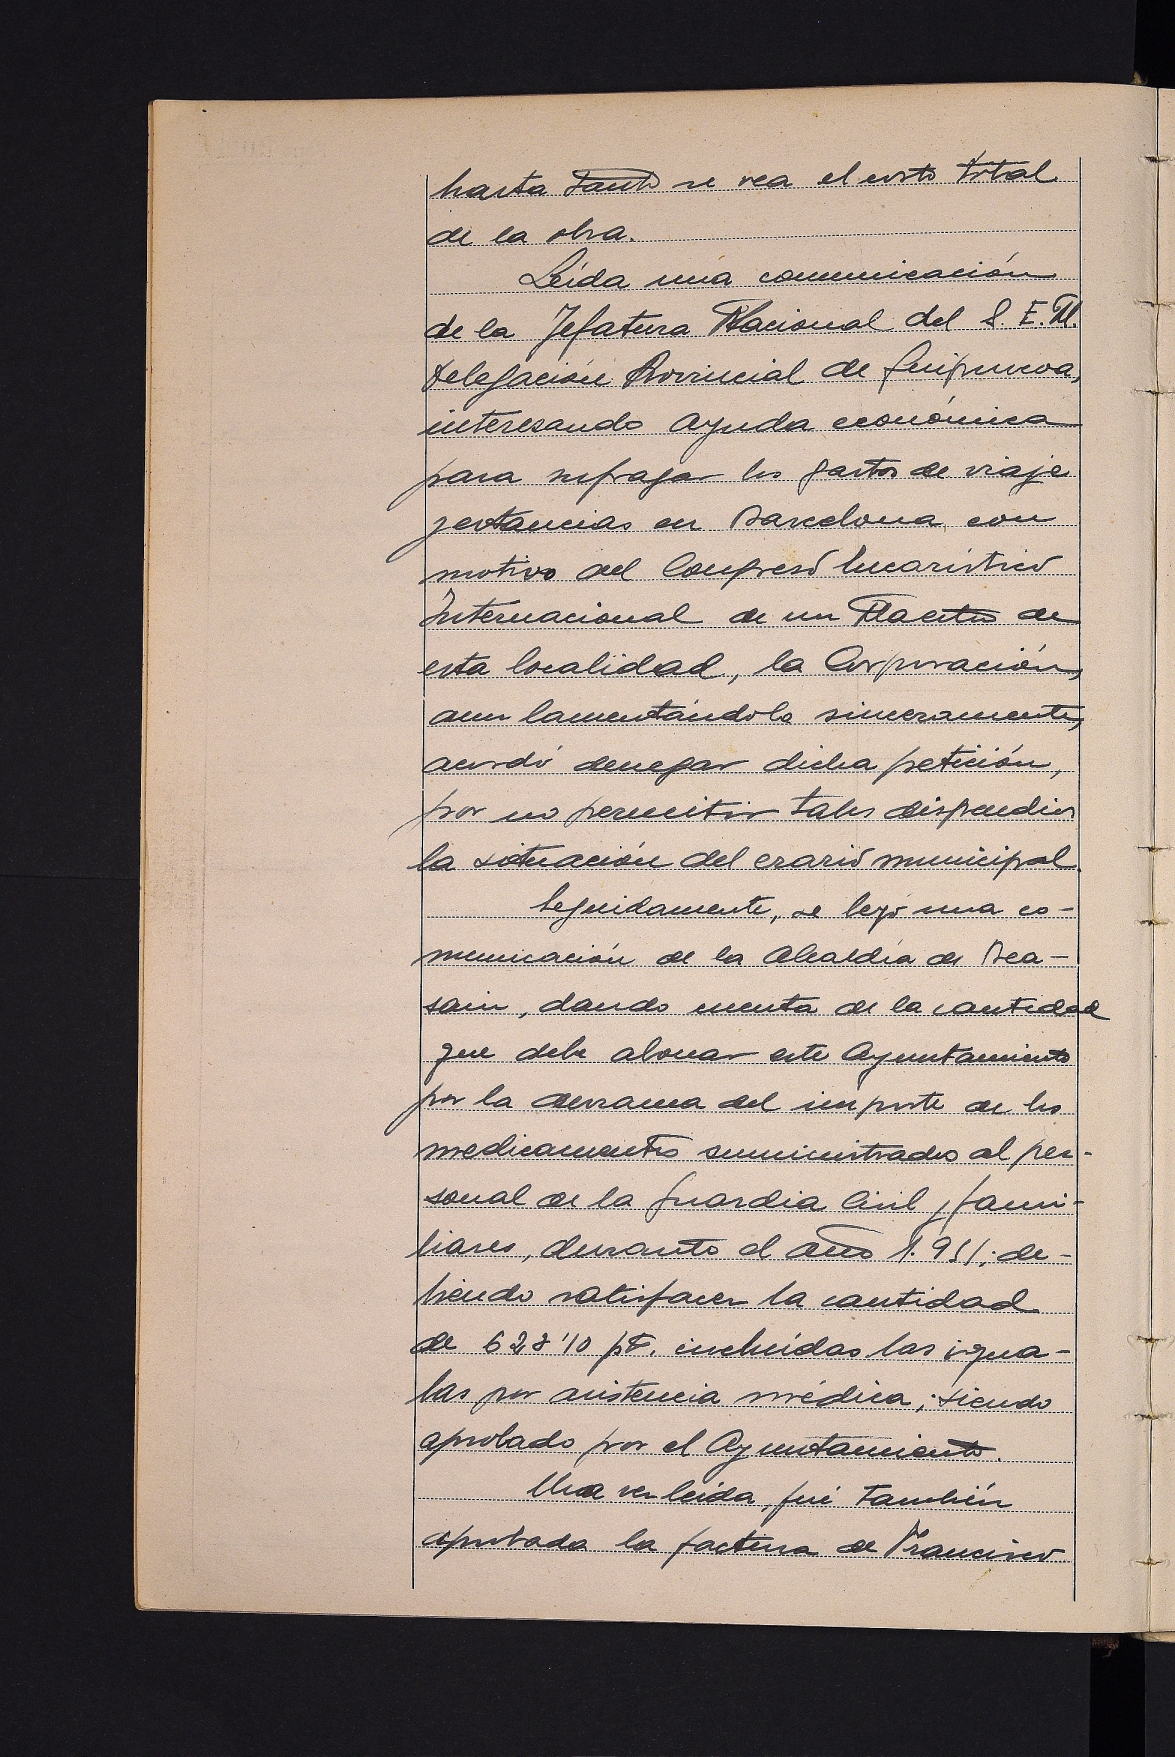 hasta tanto se vea el costo total
de la obra.
Leída una comunicación
de la Jefatura Nacional del S. E. M.
Delegación Provincial de Guipuzcoa,
interesando ayuda económica
para sufragar los gastos de viaje
y estancias en Barcelona con
motivo del Congreso Eucarístico
Internacional de un Maestro de
esta localidad, la Corporación,
aun lamentándolo sinceramente,
acordó denegar dicha petición,
por no permitir tales dispendios
la situación del erario municipal.
Seguidamente, se leyó una co-
municación de la Alcaldía de Bea-
sain, dando cuenta de la cantidad
que debe abonar este Ayuntamiento
por la derrama del importe de los
medicamentos suministrados al per-
sonal de la Guardia Civil y fami-
liares, durante el año 1.951; de-
biendo satisfacer la cantidad
de 628'10 pt. incluídas las igua-
las por asistencia médica; siendo
aprobado por el Ayuntamiento.
Una vez leída, fué también
aprobada la factura de Francisco